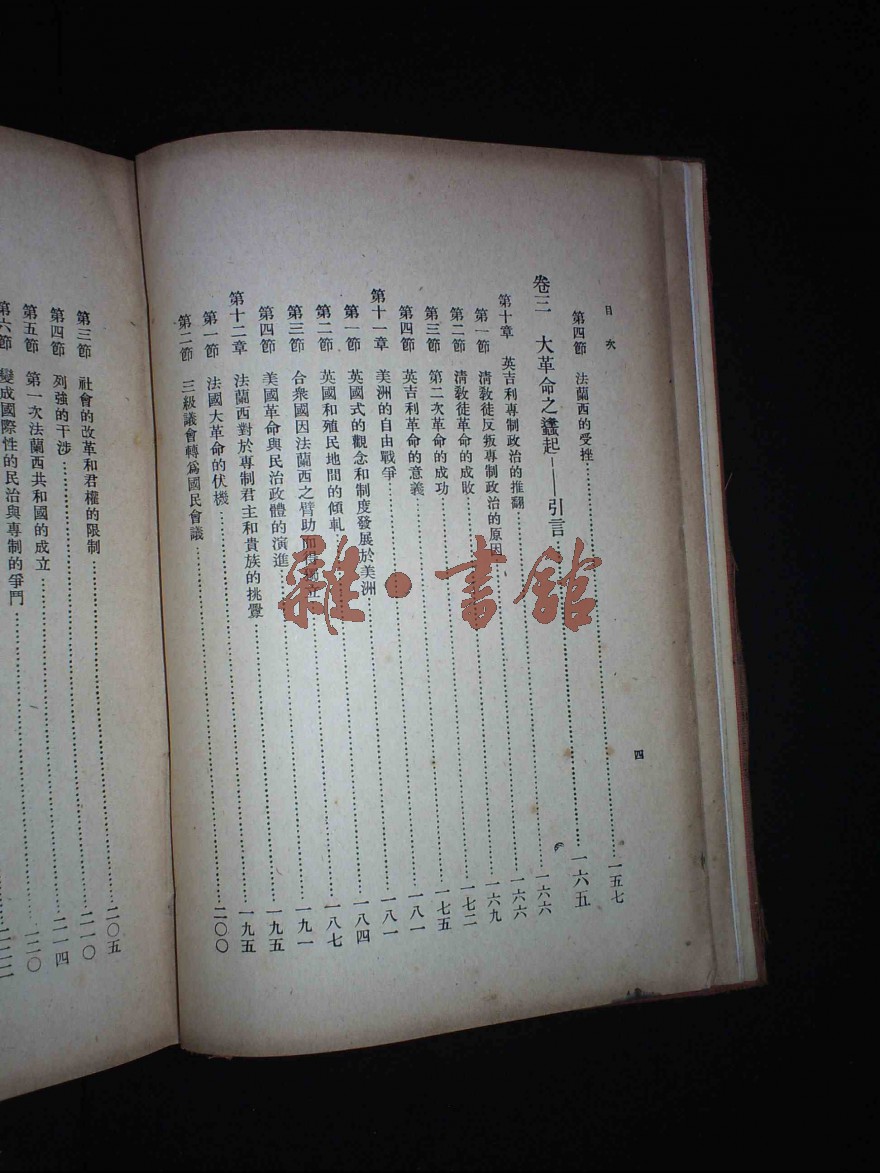 目次
四
第四節 法蘭西的受挫……一五七
卷三 大革命之蠭起——引言……一六五
第十章 英吉利專制政治的推翻……一六六
第一節 清教徒反叛專制政治的原因……一六六
第二節 清教徒革命的成敗……一六九
第三節 第二次革命的成功……一七二
第四節 英吉利革命的意義……一七五
第十一章 美洲的自由戰爭……一八一
第一節 英國式的觀念和制度發展於美洲……一八一
第二節 英國和殖民地間的傾軋……一八四
第三節 合衆國因法蘭西之臂助而得獨立……一八七
第四節 美國革命與民治政體的演進……一九一
第十二章 法蘭西對於專制君主和貴族的挑釁……一九五
第一節 法國大革命的伏機……一九五
第二節 三級議會轉爲國民會議……二〇〇
第三節 社會的改革和君權的限制……二〇五
第四節 列強的干涉……二一〇
第五節 第一次法蘭西共和國的成立……二一四
第六節 變成國際性的民治與專制的爭鬥……二二〇
雜·書館